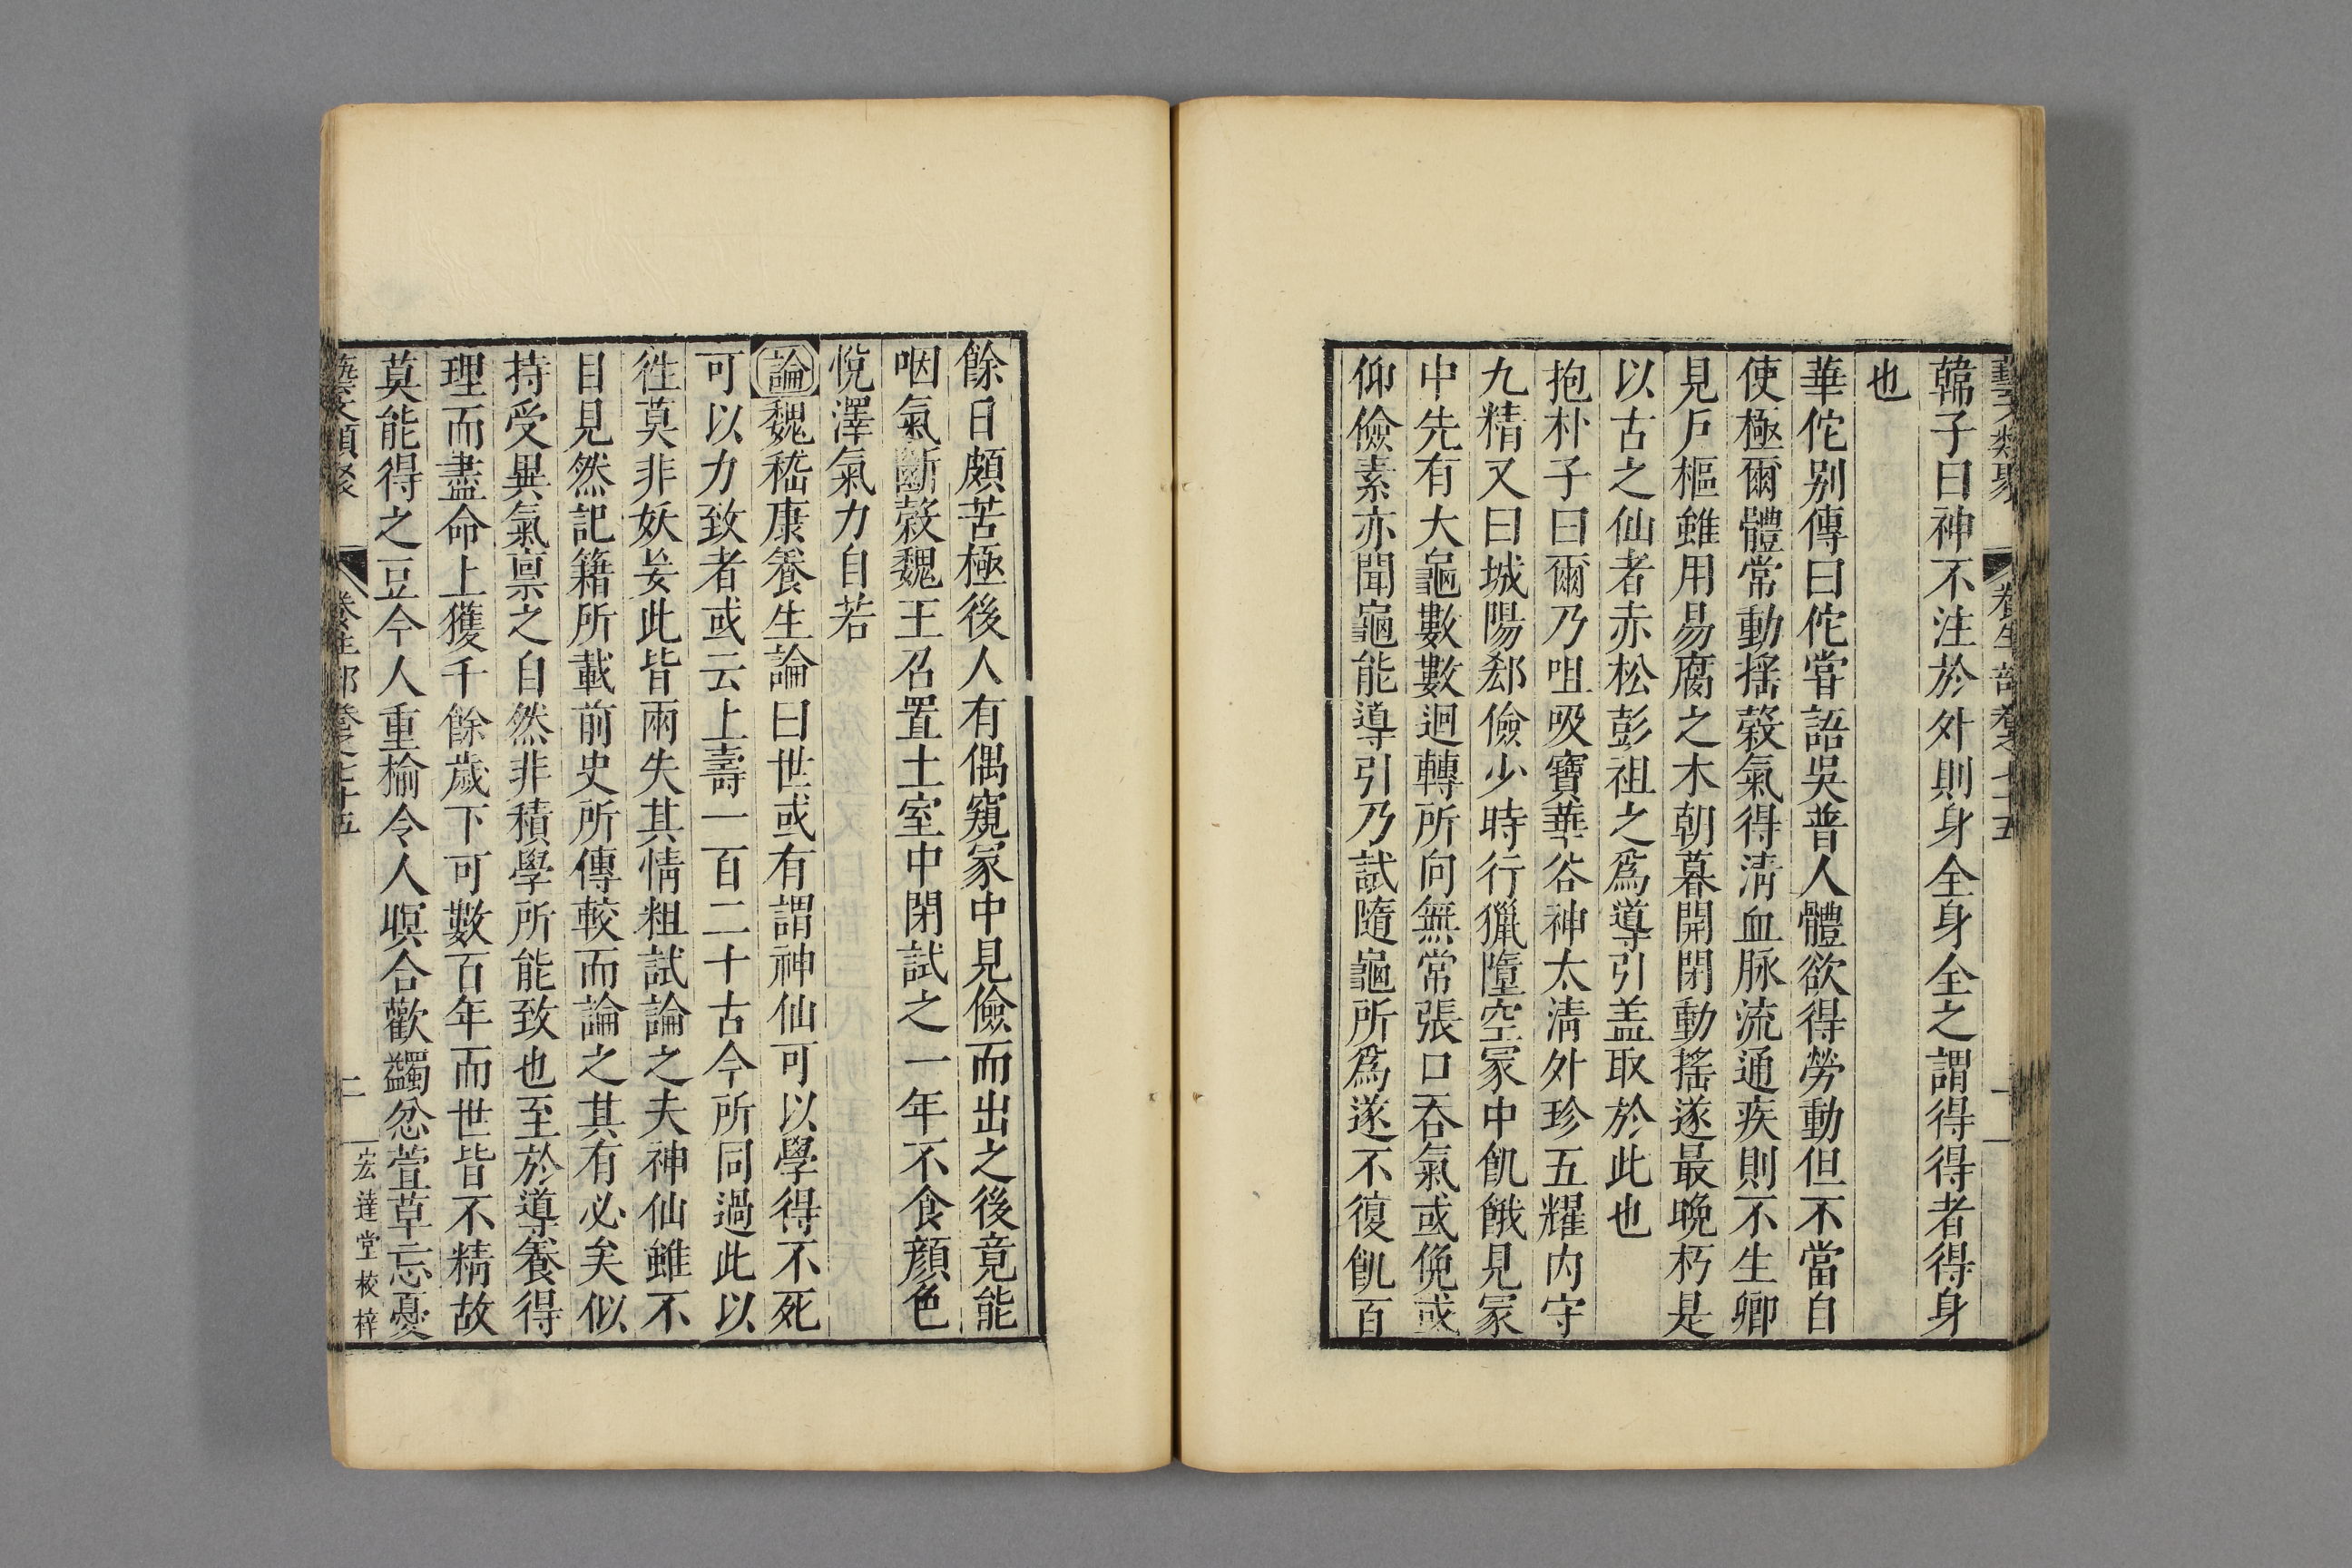 藝文類聚 養生部 卷之七十五 一
韓子曰神不注於外則身全身全之謂得得者得身
也
華佗别傳曰佗甞語吳普人體欲得勞動但不當自
使極爾體常動摇榖氣得淸血脉流通疾則不生卿
見戶樞雖用易腐之木朝暮開閉動摇遂最晩朽是
以古之仙者赤松彭祖之爲導引盖取於此也
抱朴子曰爾乃咀吸寶華谷神太淸外珍五耀内守
九精又曰城陽郄儉少時行獵墮空冢中飢餓見冢
中先有大龜數數迴轉所向無常張口吞氣或俛或
仰儉素亦聞龜能導引乃試隨龜所爲遂不復飢百
餘日頗苦極後人有偶窺冢中見儉而出之後竟能
咽氣斷榖魏王召置土室中閉試之一年不食顏色
悅澤氣力自若
論魏嵇康養生論曰世或有謂神仙可以學得不死
可以力致者或云上壽一百二十古今所同過此以
徃莫非妖妄此皆兩失其情粗試論之夫神仙雖不
目見然記籍所載前史所傳較而論之其有必矣似
持受異氣禀之自然非積學所能致也至於導養得
理而盡命上獲千餘歲下可數百年而世皆不精故
莫能得之豆令人重榆令人瞑合歡蠲忿萱草忘憂
藝文類聚 養生部 卷之七十五 二 宏達堂校梓